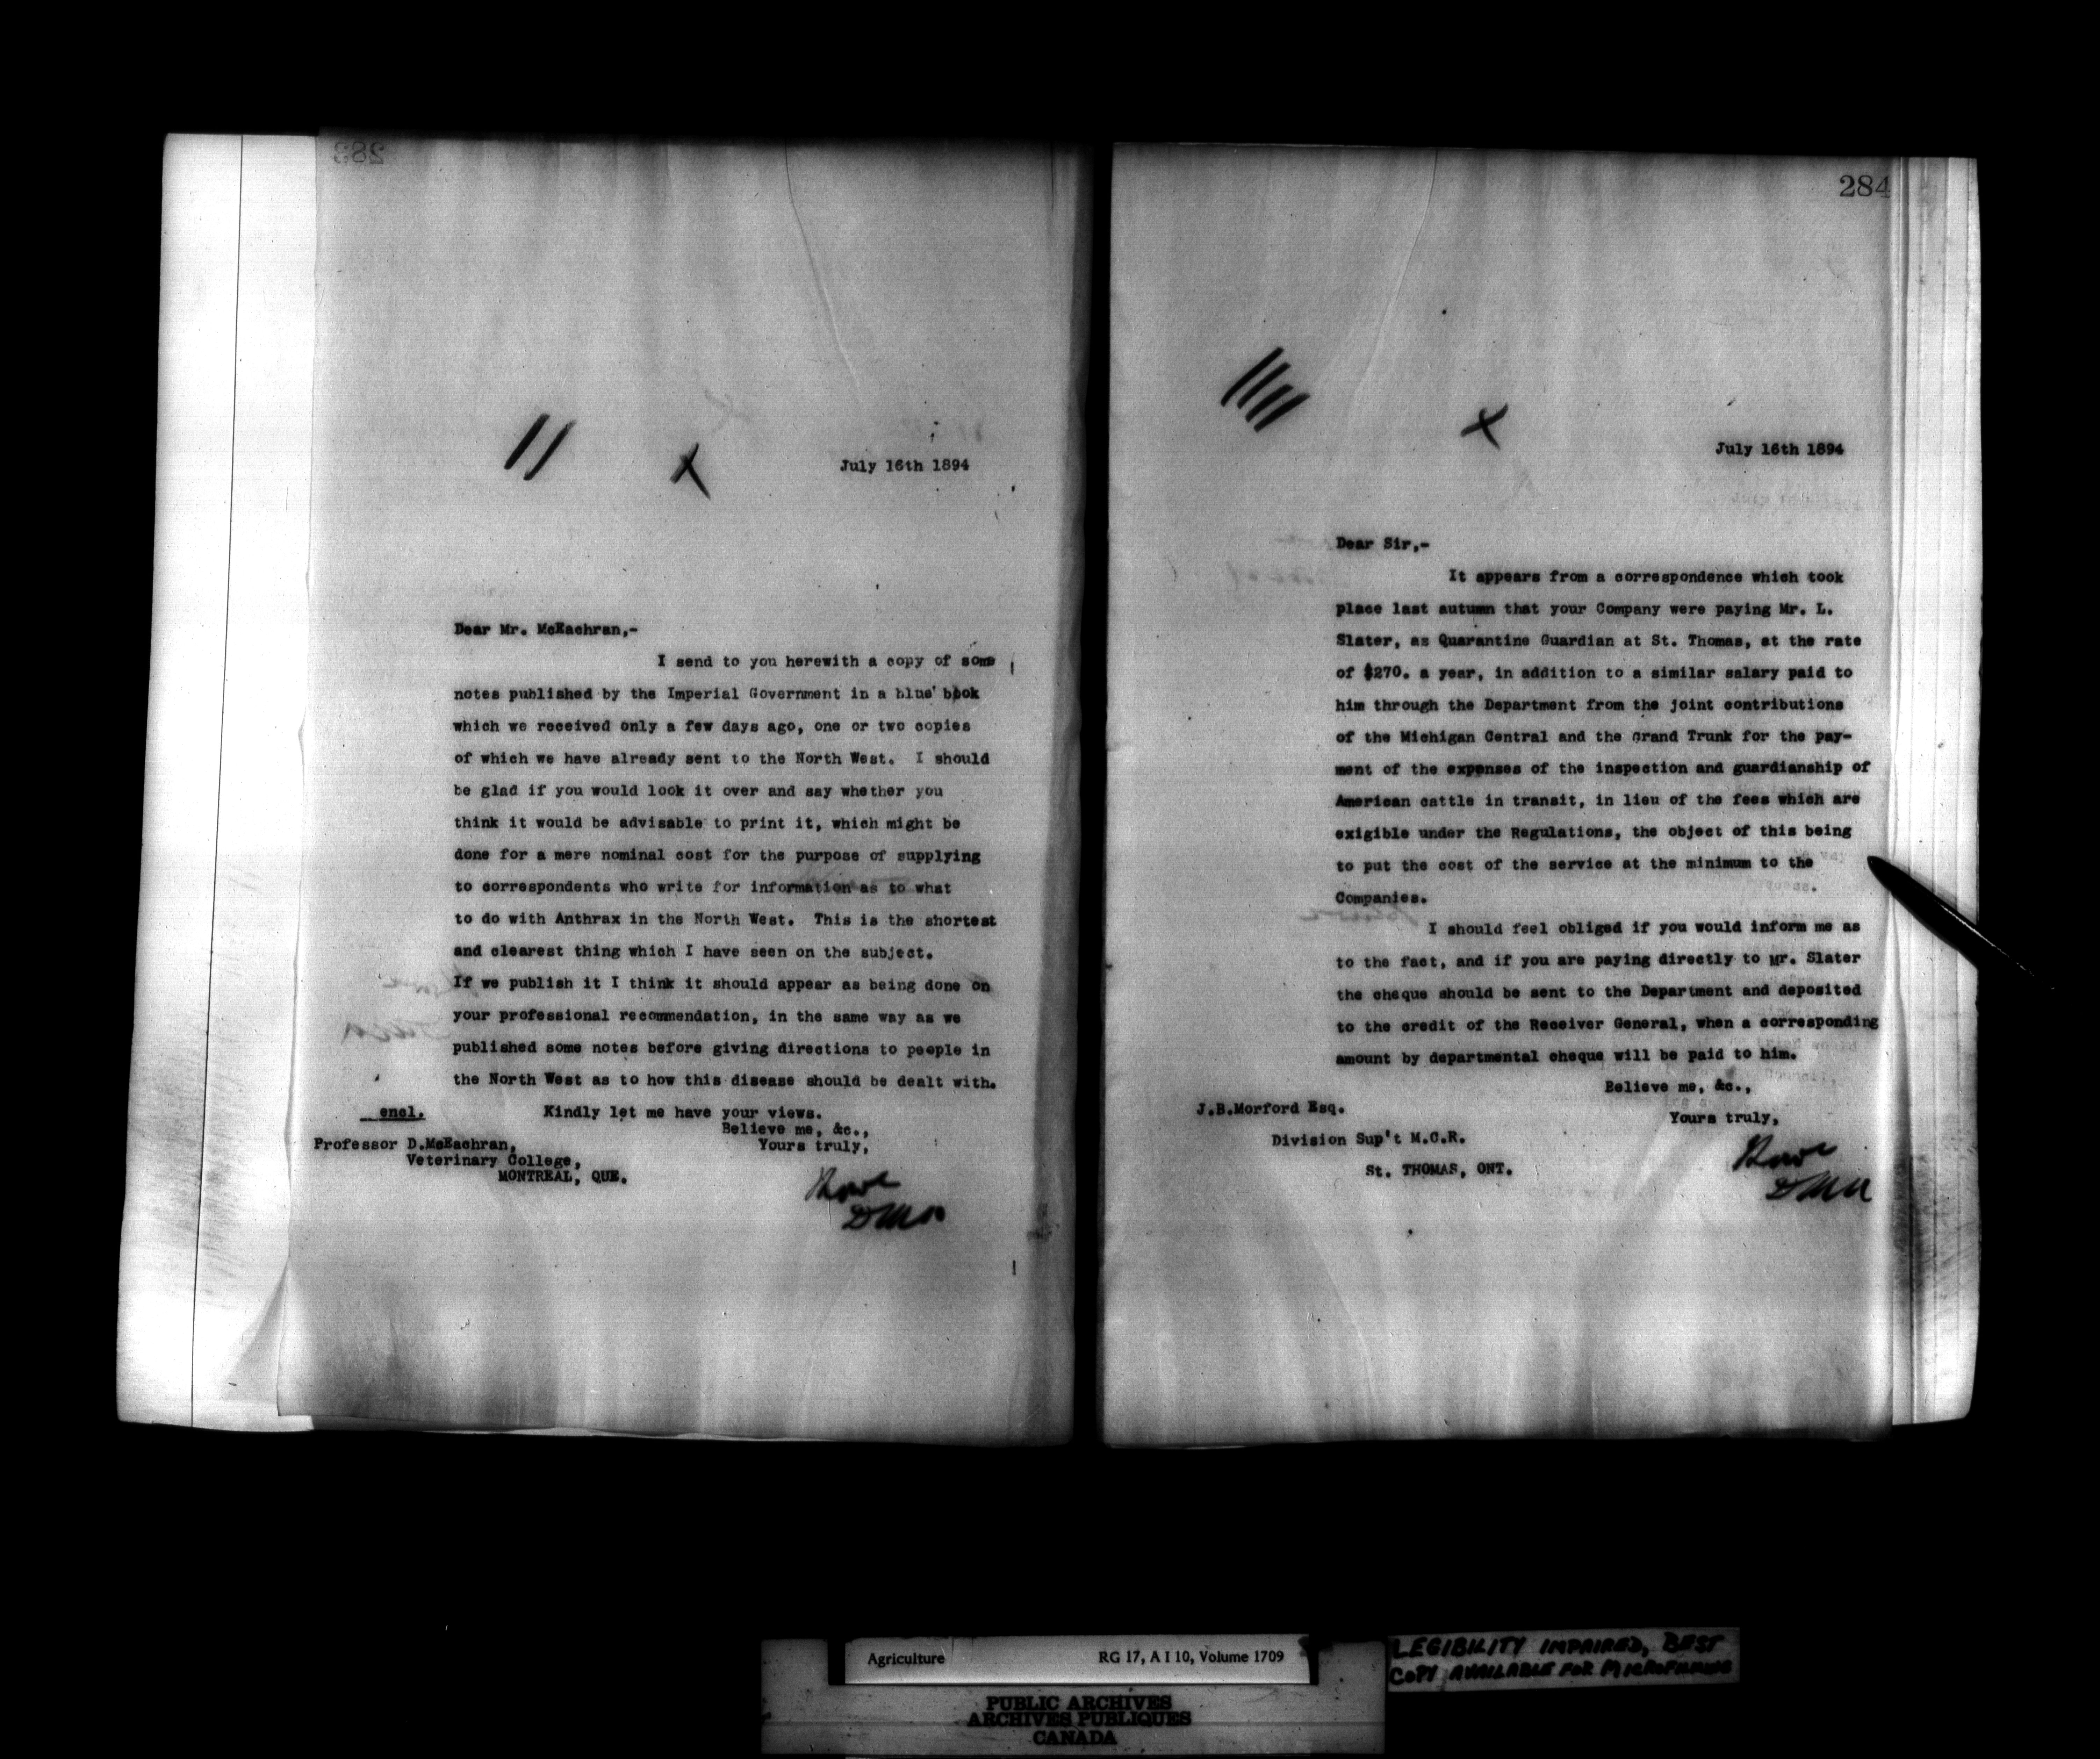 283
July 16th 1894
Dear Mr. McEachran,-
I send to you herewith a copy of some
notes published by the Imperial Government in a blue book
which we received only a few days ago, one or two copies
of which we have already sent to the North West. I should
be glad if you would look it over and say whether you
think it would be advisable to print it, which might be
done for a mere nominal cost for the purpose of supplying
to correspondents who write for information as to what
to do with Anthrax in the North West. This is the shortest
and clearest thing which I have seen on the subject.
If we publish it I think it should appear as being done on
your professional recommendation, in the same way as we
published some notes before giving directions to people in
the North West as to how this disease should be dealt with.
encl. Kindly let me have your views.
Believe me, &c.,
Professor D.McEachran, Yours truly,
Veterinary College,
MONTREAL, QUE.
284
July 16th 1894
Dear Sir,-
It appears from a correspondence which took
place last autumn that your Company were paying Mr. L.
Slater, as Quarantine Guardian at St. Thomas, at the rate
of $270. a year, in addition to a similar salary paid to
him through the Department from the joint contributions
of the Michigan Central and the Grand Trunk for the pay-
ment of the expenses of the inspection and guardianship of
American cattle in transit, in lieu of the fees which are
exigible under the Regulations, the object of this being
to put the cost of the service at the minimum to the
Companies.
I should feel obliged if you would inform me as
to the fact, and if you are paying directly to Mr. Slater
the cheque should be sent to the Department and deposited
to the credit of the Receiver General, when a corresponding
amount by departmental cheque will be paid to him.
Believe me, &c.,
J.B.Morford Esq.
Yours truly,
Division Sup't M.C.R.
St. THOMAS, ONT.
Agriculture RG 17, A I 10, Volume 1709
LEGIBILITY IMPAIRED, BEST
COPY AVAILABLE FOR MICROFILMING
PUBLIC ARCHIVES
ARCHIVES PUBLIQUES
CANADA